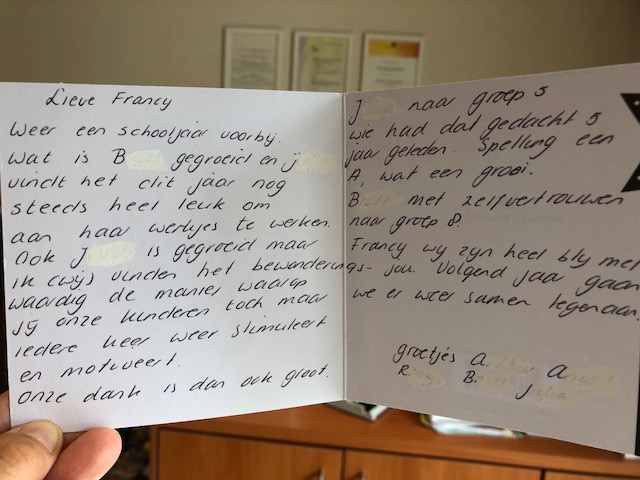 Lieve Francy
Weer een schooljaar voorbij.
Wat is B gegroeid en j
vindt het dit jaar nog
steeds heel leuk om
aan haar werkjes te werken.
Ook J is gegroeid maar
ik (wij) vinden het bewonderings-
waardig de manier waarop
jij onze kinderen toch maar
iedere keer weer stimuleert
en motiveert.
Onze dank is dan ook groot.
J naar groep 5
wie had dat gedacht 5
jaar geleden. Spelling een
A, wat een groei.
B met zelfvertrouwen
naar groep 8.
Francy wij zijn heel blij met
jou. Volgend jaar gaan
we er weer samen tegenaan.
groetjes A A
R B. J